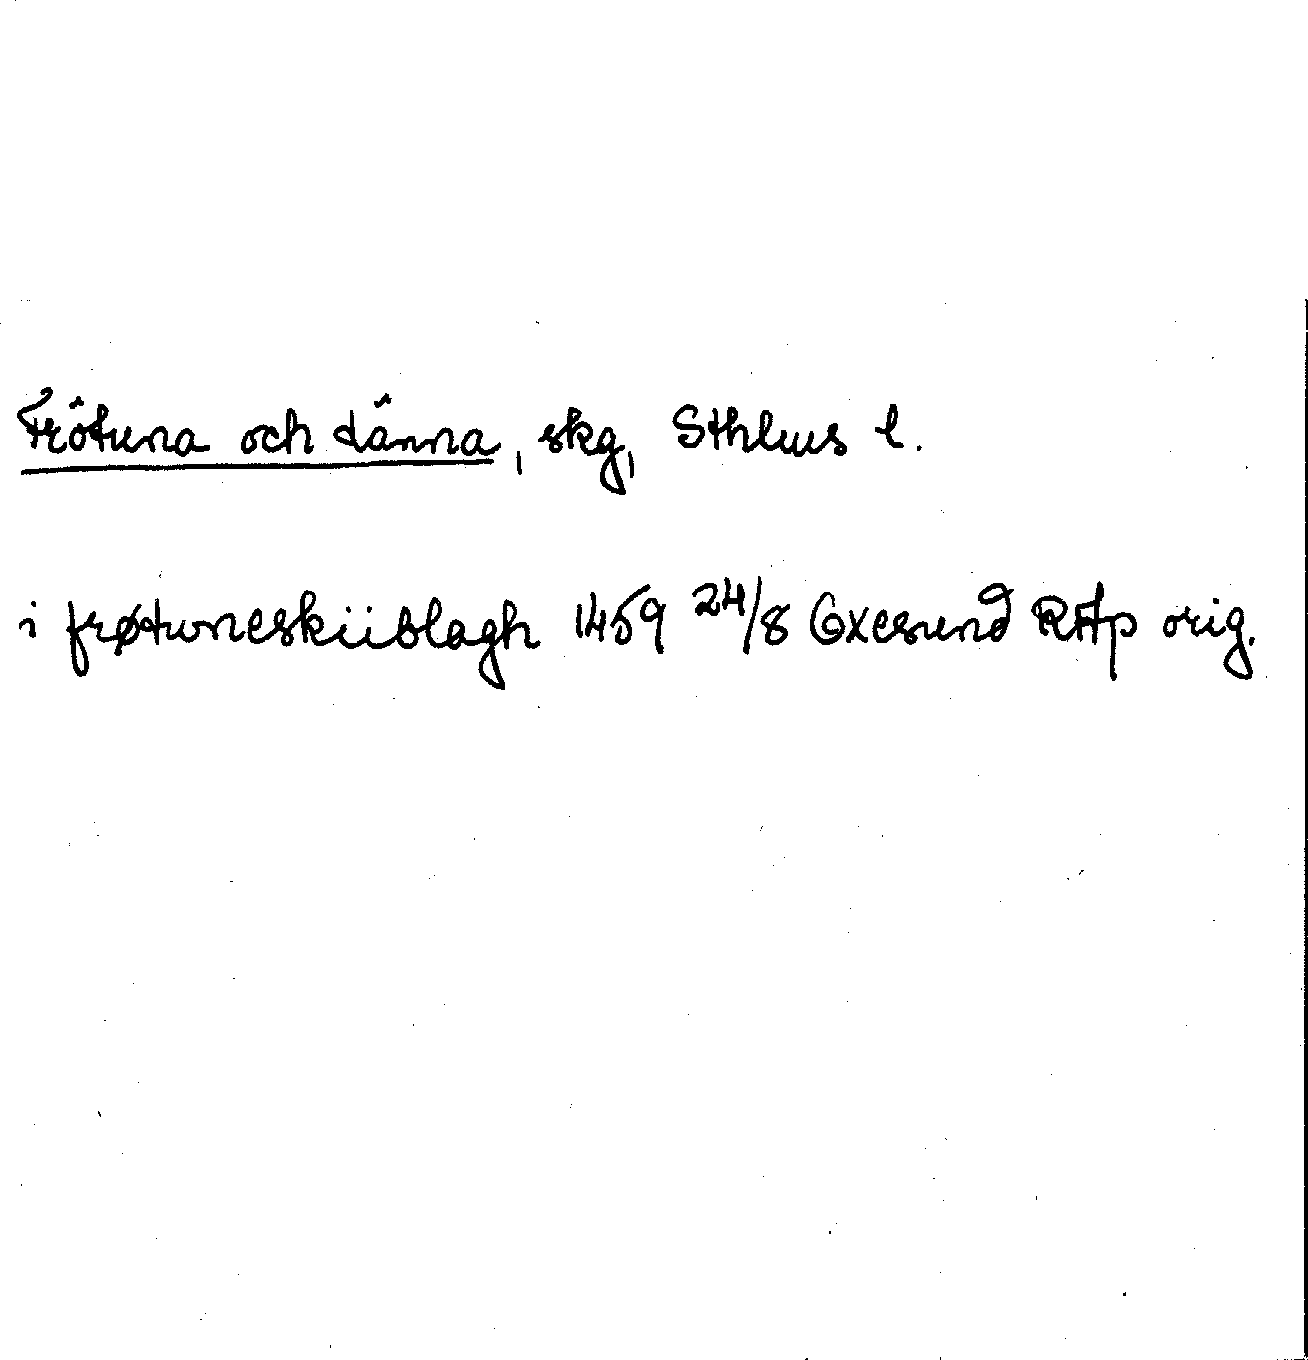 Frötuna och Länna, skg, Sthlms l.
i frøtuneskiiblagh 1459 24/8 Öxesund RAp orig.